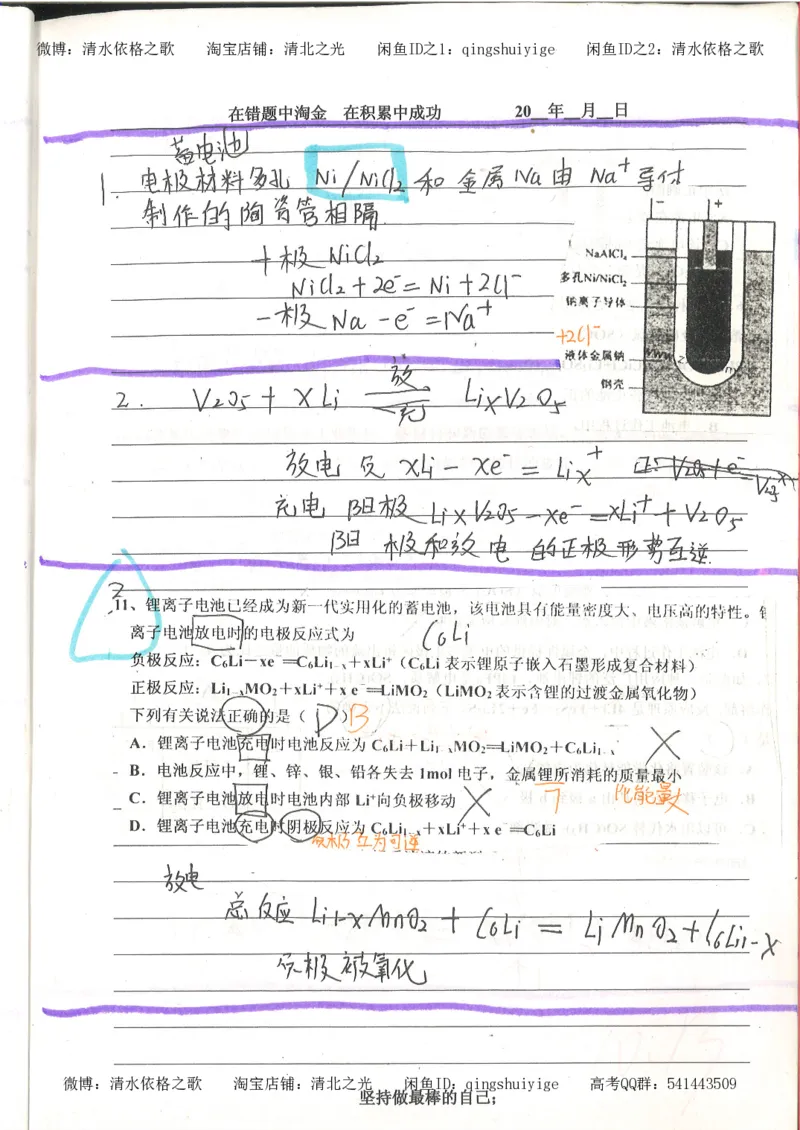 微博：清水依格之歌 淘宝店铺：清北之光 闲鱼ID之1：qingshuiyige 闲鱼ID之2：清水依格之歌
在错题中淘金 在积累中成功 20__年__月__日
蓄电池
1. 电极材料多孔 Ni/NiCl₂ 和金属Na由Na⁺导体
制作的陶瓷管相隔.
+极 NiCl₂
NiCl₂+2e⁻=Ni+2Cl⁻
-极 Na-e⁻=Na⁺
+2Cl⁻
- +
NaAlCl₄
多孔Ni/NiCl₂
钠离子导体
液体金属钠
钢壳
2. V₂O₅+XLi 放 充 LiₓV₂O₅
放电 负 xLi-xe⁻=Liₓ⁺
充电 阳极 LiₓV₂O₅-xe⁻=xLi⁺+V₂O₅
阳极和放电的正极形势互逆.
11、锂离子电池已经成为新一代实用化的蓄电池，该电池具有能量密度大、电压高的特性。锂
离子电池放电时的电极反应式为 C₆Li
负极反应：C₆Li－xe⁻═C₆Li₁₋ₓ+xLi⁺（C₆Li 表示锂原子嵌入石墨形成复合材料）
正极反应：Li₁₋ₓMO₂+xLi⁺+x e⁻═LiMO₂（LiMO₂ 表示含锂的过渡金属氧化物）
下列有关说法正确的是（ D ）B
A．锂离子电池充电时电池反应为 C₆Li+Li₁₋ₓMO₂═LiMO₂+C₆Li₁₋ₓ ×
B．电池反应中，锂、锌、银、铅各失去 1mol 电子，金属锂所消耗的质量最小
7 比能量大
C．锂离子电池放电时电池内部 Li⁺向负极移动 ×
D．锂离子电池充电时阴极反应为 C₆Li₁₋ₓ+xLi⁺+x e⁻═C₆Li
负极 互为可逆
放电
总反应 Li₁₋ₓMnO₂+C₆Li=LiMnO₂+C₆Li₁₋ₓ
负极被氧化
微博：清水依格之歌 淘宝店铺：清北之光 闲鱼ID：qingshuiyige 高考QQ群：541443509
坚持做最棒的自己；